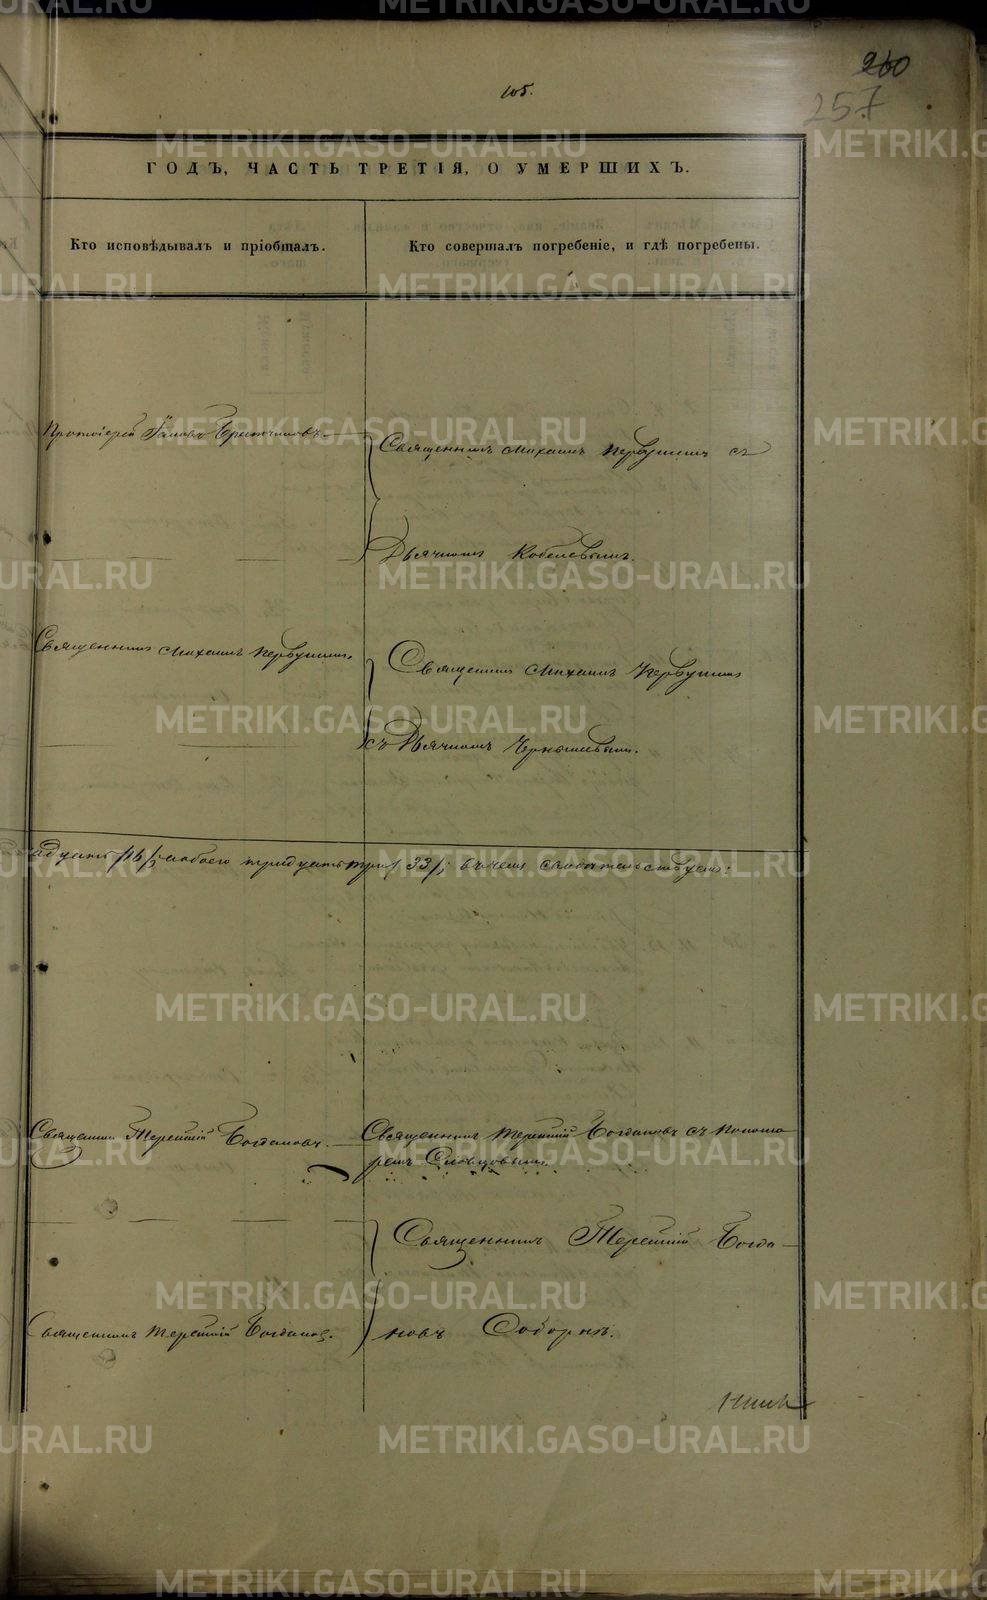 260
257
105.
ГОДЪ, ЧАСТЬ ТРЕТІЯ, О УМЕРШИХЪ.
Кто исповѣдывалъ и пріобщалъ.
Кто совершалъ погребеніе, и гдѣ погребены.
Протоіерей Іаковъ
Священникъ Михаилъ Первушинъ съ
Дьячкомъ Кобелевымъ.
Священникъ Михаилъ Первушинъ
Священникъ Михаилъ Первушинъ
съ Дьячкомъ Чернышевымъ.
/16/; обоего тридцать три /33/; въ чемъ свидѣтельствуемъ:
Священникъ Терентій Богдановъ.
Священникъ Терентій Богдановъ съ Понома
ремъ Словцовымъ.
Священникъ Терентій Богда
Священникъ Терентій Богдановъ.
новъ Соборнѣ.
METRIKI.GASO-URAL.RU